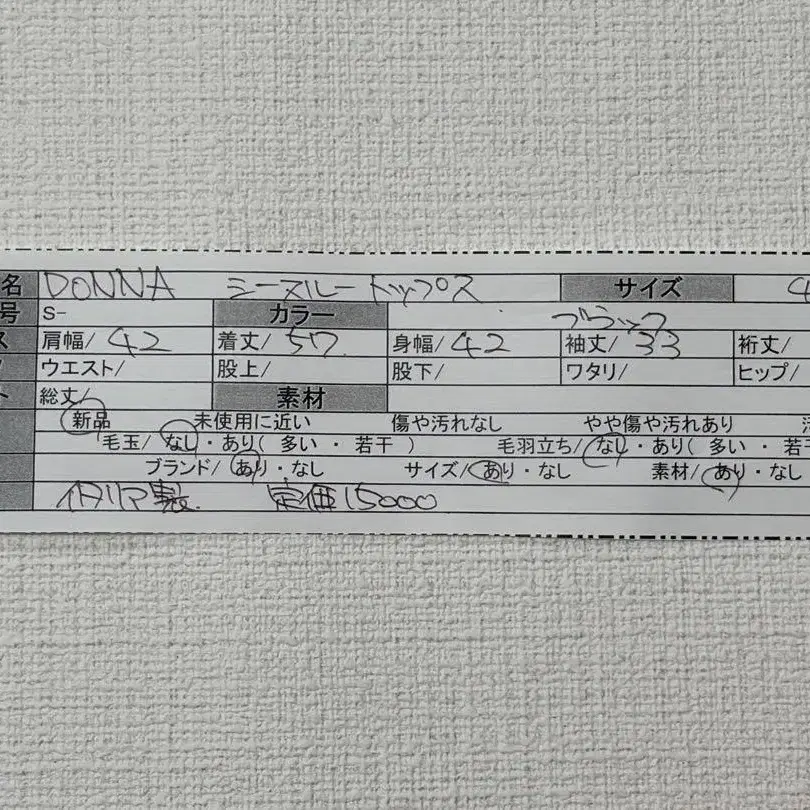 名 DONNA シースルートップス サイズ 4
号 S- カラー ブラック
ス 肩幅/ 42 着丈/ 57 身幅/ 42 袖丈/ 33 裄丈/
ウエスト/ 股上/ 股下/ ワタリ/ ヒップ/
ト 総丈/ 素材
新品 未使用に近い 傷や汚れなし やや傷や汚れあり 汚
毛玉/ なし・あり( 多い ・ 若干 ) 毛羽立ち/ なし・あり( 多い ・ 若干
ブランド/ あり・なし サイズ/ あり・なし 素材/ あり・なし
イタリア製 定価15000